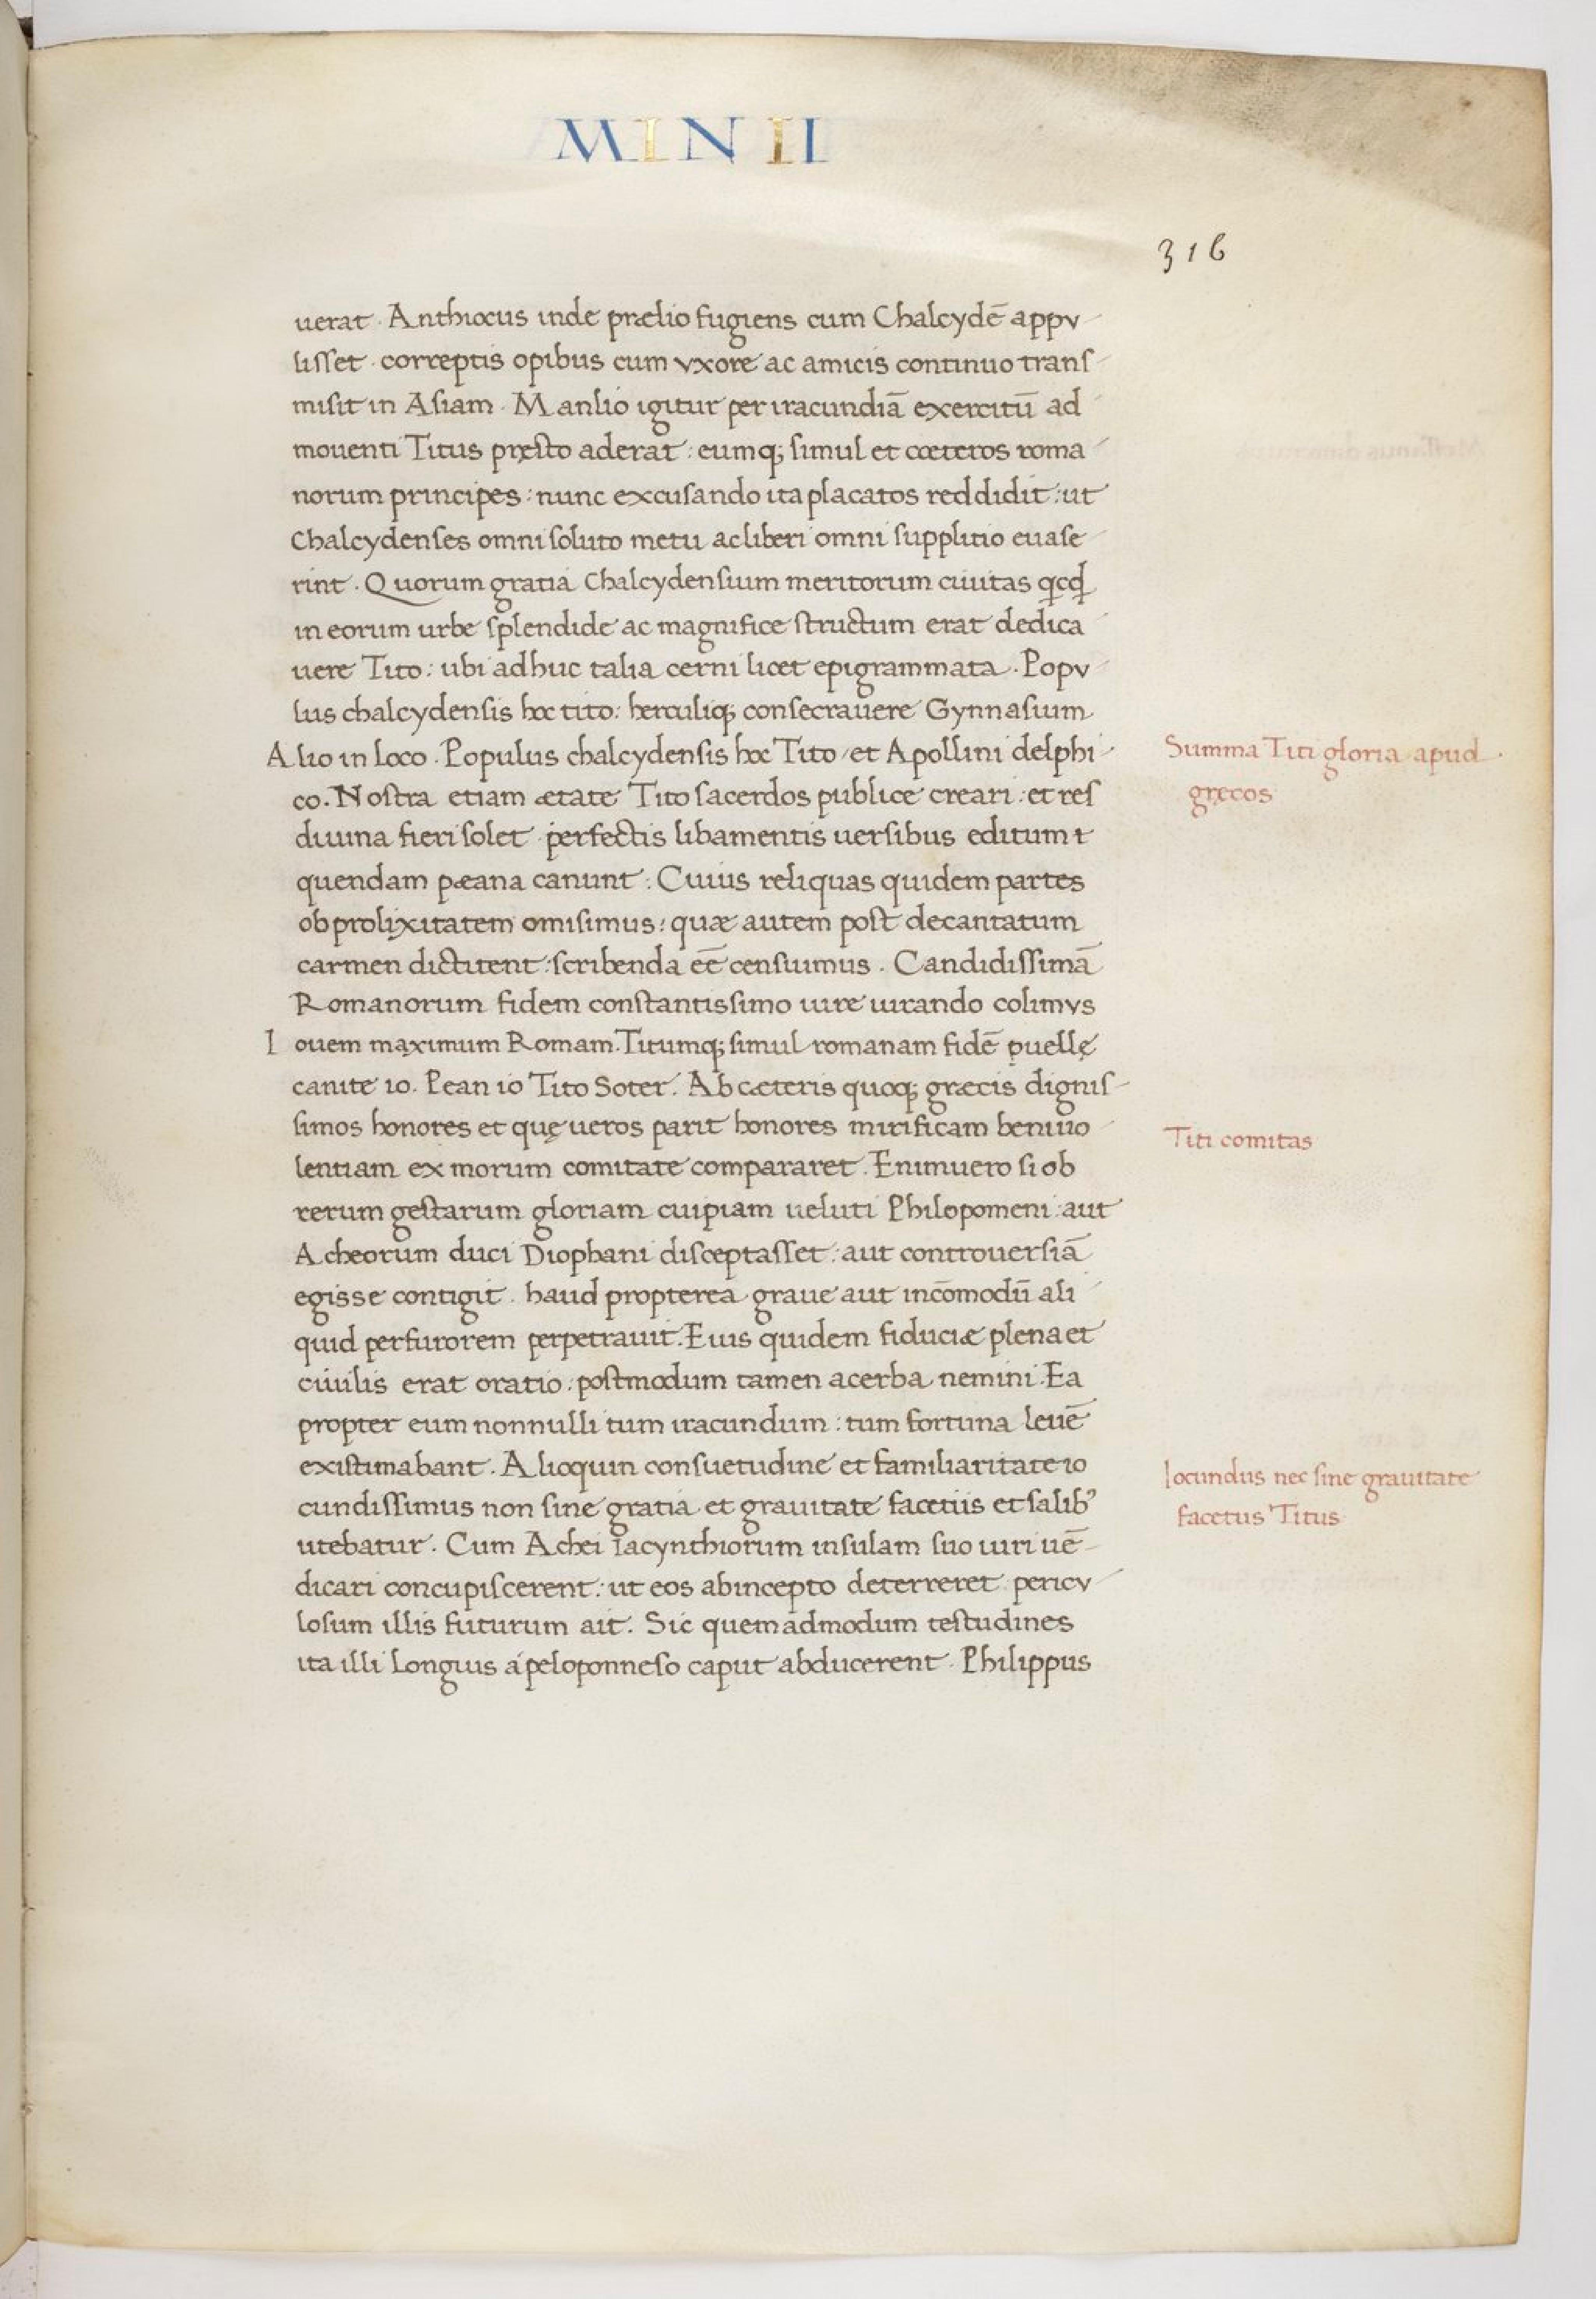 MINII
316
uerat. Anthiocus inde prælio fugiens cum Chalcydē appv
lisset. correptis opibus cum vxore ac amicis continuo trans
misit in Asiam. Manlio igitur per iracundiā exercitū ad
mouenti Titus pręsto aderat: eumq; simul et cœteros roma
norum principes: nunc excusando ita placatos reddidit: ut
Chalcydenses omni soluto metu ac liberi omni supplitio euase
rint. Quorum gratia Chalcydensium meritorum ciuitas qcqd
in eorum urbe splendide ac magnifice structum erat dedica
uere Tito: ubi adhuc talia cerni licet epigrammata. Popv
lus chalcydensis hoc tito: herculiq; consecrauere Gynnasium
Alio in loco. Populus chalcydensis hoc Tito et Apollini delphi
co. Nostra etiam ætate Tito sacerdos publice creari: et res
diuina fieri solet perfectis libamentis uersibus editum t
quendam pæana canunt: Cuius reliquas quidem partes
ob prolixitatem omisimus: quæ autem post decantatum
carmen dictitent: scribenda eē censuimus. Candidissimā
Romanorum fidem constantissimo iure iurando colimvs
Iouem maximum Romam. Titumq; simul romanam fidē puellę
canite io. Pean io Tito Soter. Ab cæteris quoq; græcis dignis
simos honores et quę ueros parit honores mirificam beniuo
lentiam ex morum comitate compararet. Enimuero si ob
rerum gestarum gloriam cuipiam ueluti Philopomeni: aut
Acheorum duci Diophani disceptasset: aut controuersiā
egisse contigit. haud propterea graue aut incōmodū ali
quid per furorem perpetrauit. Eius quidem fiduciæ plena et
ciuilis erat oratio: postmodum tamen acerba nemini. Ea
propter eum nonnulli tum iracundum: tum fortuna leuē
existimabant. Alioquin consuetudine et familiaritate io
cundissimus non sine gratia et grauitate facetiis et salib'
utebatur. Cum Achei Iacynthiorum insulam suo iuri uē
dicari concupiscerent: ut eos ab incepto deterreret pericv
losum illis futurum ait. Sic quemadmodum testudines
ita illi longius a peloponneso caput abducerent. Philippus
Summa Titi gloria apud
gręcos
Titi comitas
Iocundus nec sine grauitate
facetus Titus